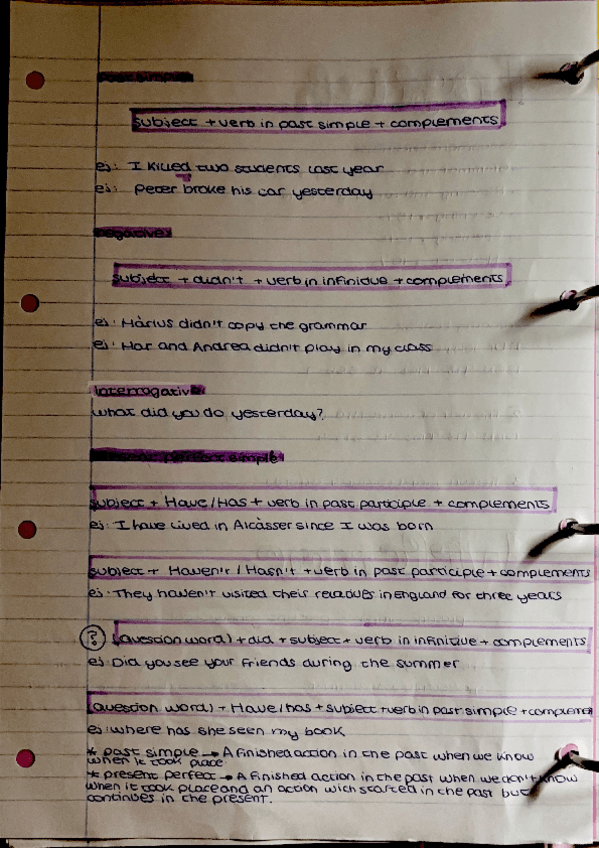 subject + verb in past simple + complements
ej: I killed two students last year
ej: Peter broke his car yesterday
negative
subject + didn't + verb in infinitive + complements
ej: Màrius didn't copy the grammar
ej: Mar and Andrea didn't play in my class
Interrogative
what did you do yesterday?
perfect simple
subject + Have/Has + verb in past participle + complements
ej: I have lived in Alcàsser since I was born
subject + Haven't / Hasn't + verb in past participle + complements
ej: They haven't visited their relatives in England for three years
? (question word) + did + subject + verb in infinitive + complements
ej: Did you see your friends during the summer
(question word) + Have/has + subject + verb in past simple + compleme
ej: where has she seen my book
* past simple → A finished action in the past when we know
when it took place
* present perfect → A finished action in the past when we don't know
when it took place and an action wich started in the past but
continues in the present.